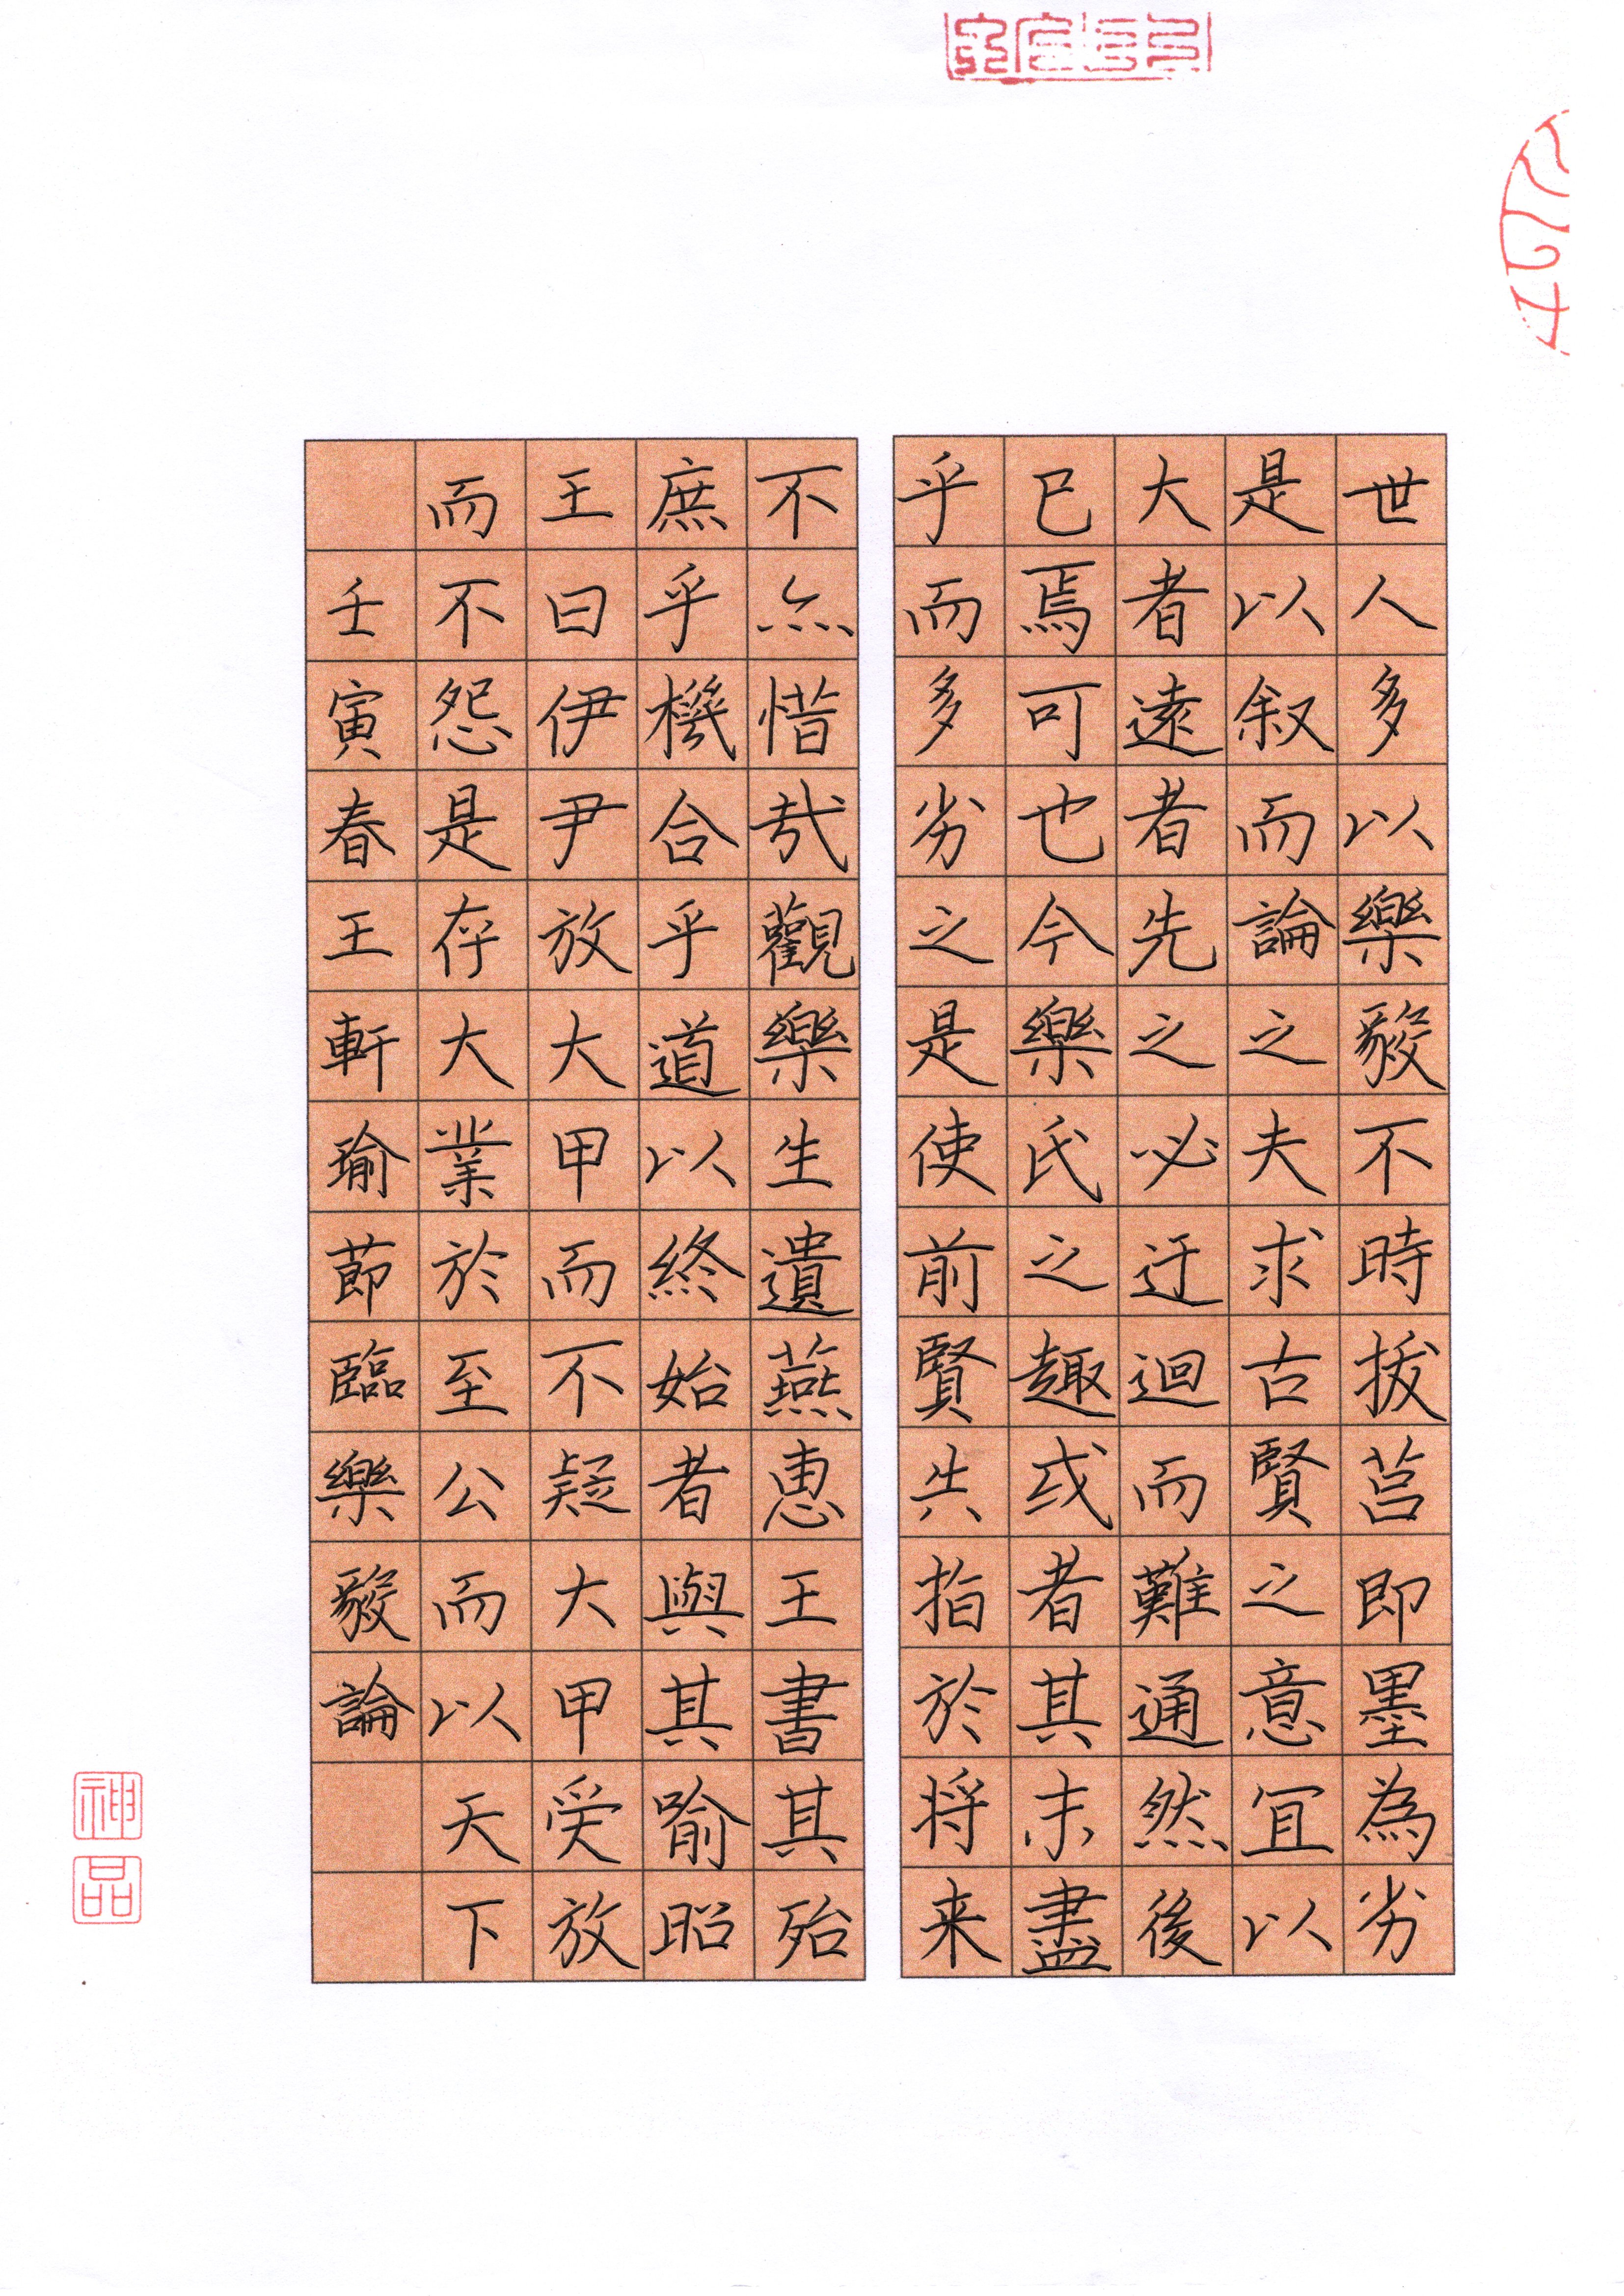 世人多以樂毅不時拔莒即墨為劣
是以叙而論之夫求古賢之意宜以
大者遠者先之必迂迴而難通然後
已焉可也今樂氏之趣或者其未盡
乎而多劣之是使前賢失指於將来
不亦惜哉觀樂生遺燕惠王書其殆
庶乎機合乎道以終始者與其喻昭
王曰伊尹放大甲而不疑大甲受放
而不怨是存大業於至公而以天下
壬寅春王軒瑜節臨樂毅論
神品